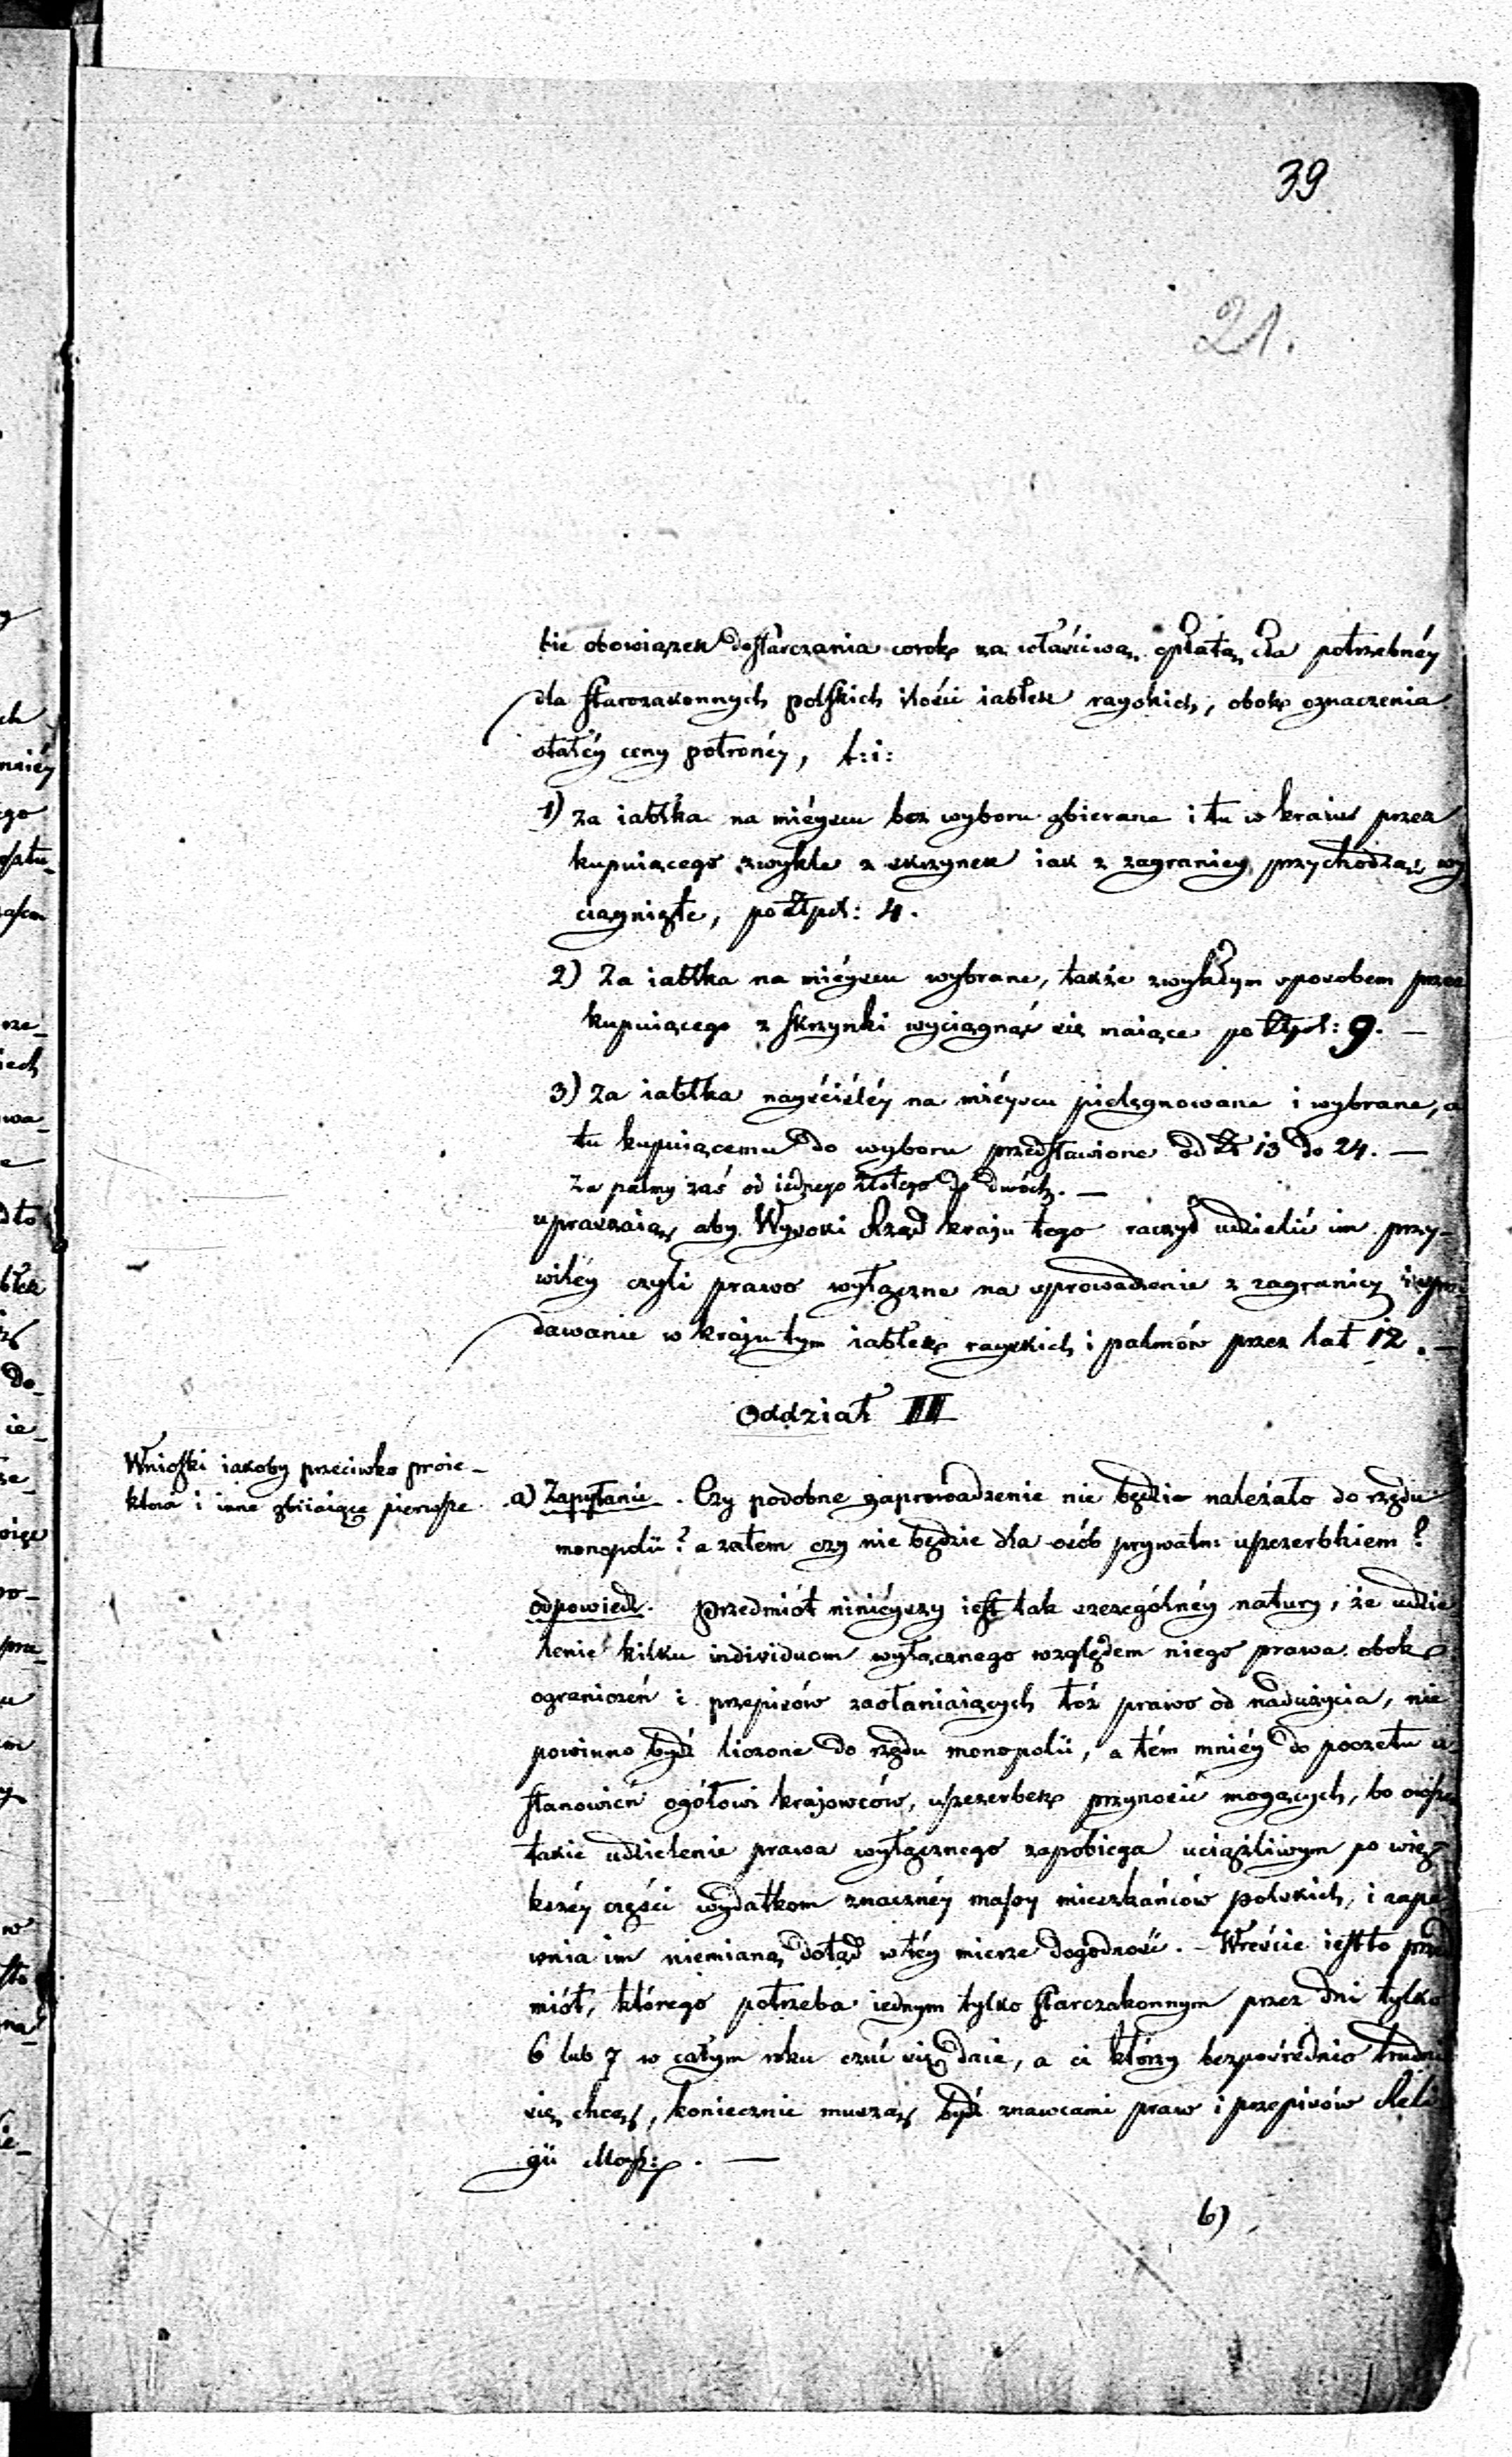 39
21.
bie obowiązek dostarczania corok za właściwą opłatą cła potrzebnéy
dla starozakonnych polskich ilości iabłek rayskich, obok oznaczenia
stałéy ceny potronéy, t:i:
1) za iabłka na mieyscu bez wyboru zbierane i tu w kraiu przez
kupuiącego zwykle z skrzynek iak z zagranicy przychodzą wy
ciągnięte, po Złpol: 4.
2) Za iabłka na mieyscu wybrane, także zwykłym sposobem przez
kupuiącego z skrzynki wyciągnąć się maiące po Złpol: 9. —
3) Za iabłka nayściśléy na mieyscu pielęgnowane i wybrane, a
tu kupuiącemu do wyboru przedstawione od Zł 13 do 24. —
Za palmy zaś od iednego złotego do dwóch. —
upraszaią, aby Wysoki Rząd kraju tego raczył udzielić im przy-
wiléy czyli prawo wyłączne na sprowadzenie z zagranicy i spro
dawanie w kraju tym iabłek rayskich i palmów przez lat 12. —
Oddział III
Wnioski iakoby przeciwko proie-
ktowi i inne zbiiaiące pierwsze
a) Zapytanie. Czy podobne zaprowadzenie nie będzie należało do rzędu
monopolii? a zatem czy nie będzie dla osób prywatn: uszczerbkiem?
odpowiedź. Przedmiót ninieyszy iest tak szczególnéy natury, że udzie
lenie kilku individuom wyłącznego względem niego prawa obok
ograniczeń i przepisów zasłaniaiących toż prawo od nadużycia, nie
powinno bydź liczone do rzędu monopolii, a tém mniéy do pocztu u
stanowień ogółowi krajowców, uszczerbek przynosić mogących, bo owszem
takie udzielenie prawa wyłącznego zapobiega uciążliwym po więk
kszéy części wydatkom znacznéy massy mieszkańców polskich, i zape
wnia im niemianą dotąd w téy mierze dogodność. - Wreście iest to przed
miót, którego potrzeba iednym tylko starozakonnym przez dni tylko
6 lub 7 w całym roku czuć się daie, a ci którzy bezpośrednio trudnić
się chcą, koniecznie muszą bydź znawcami praw i przepisów Reli
gii Moyż: . —
b)